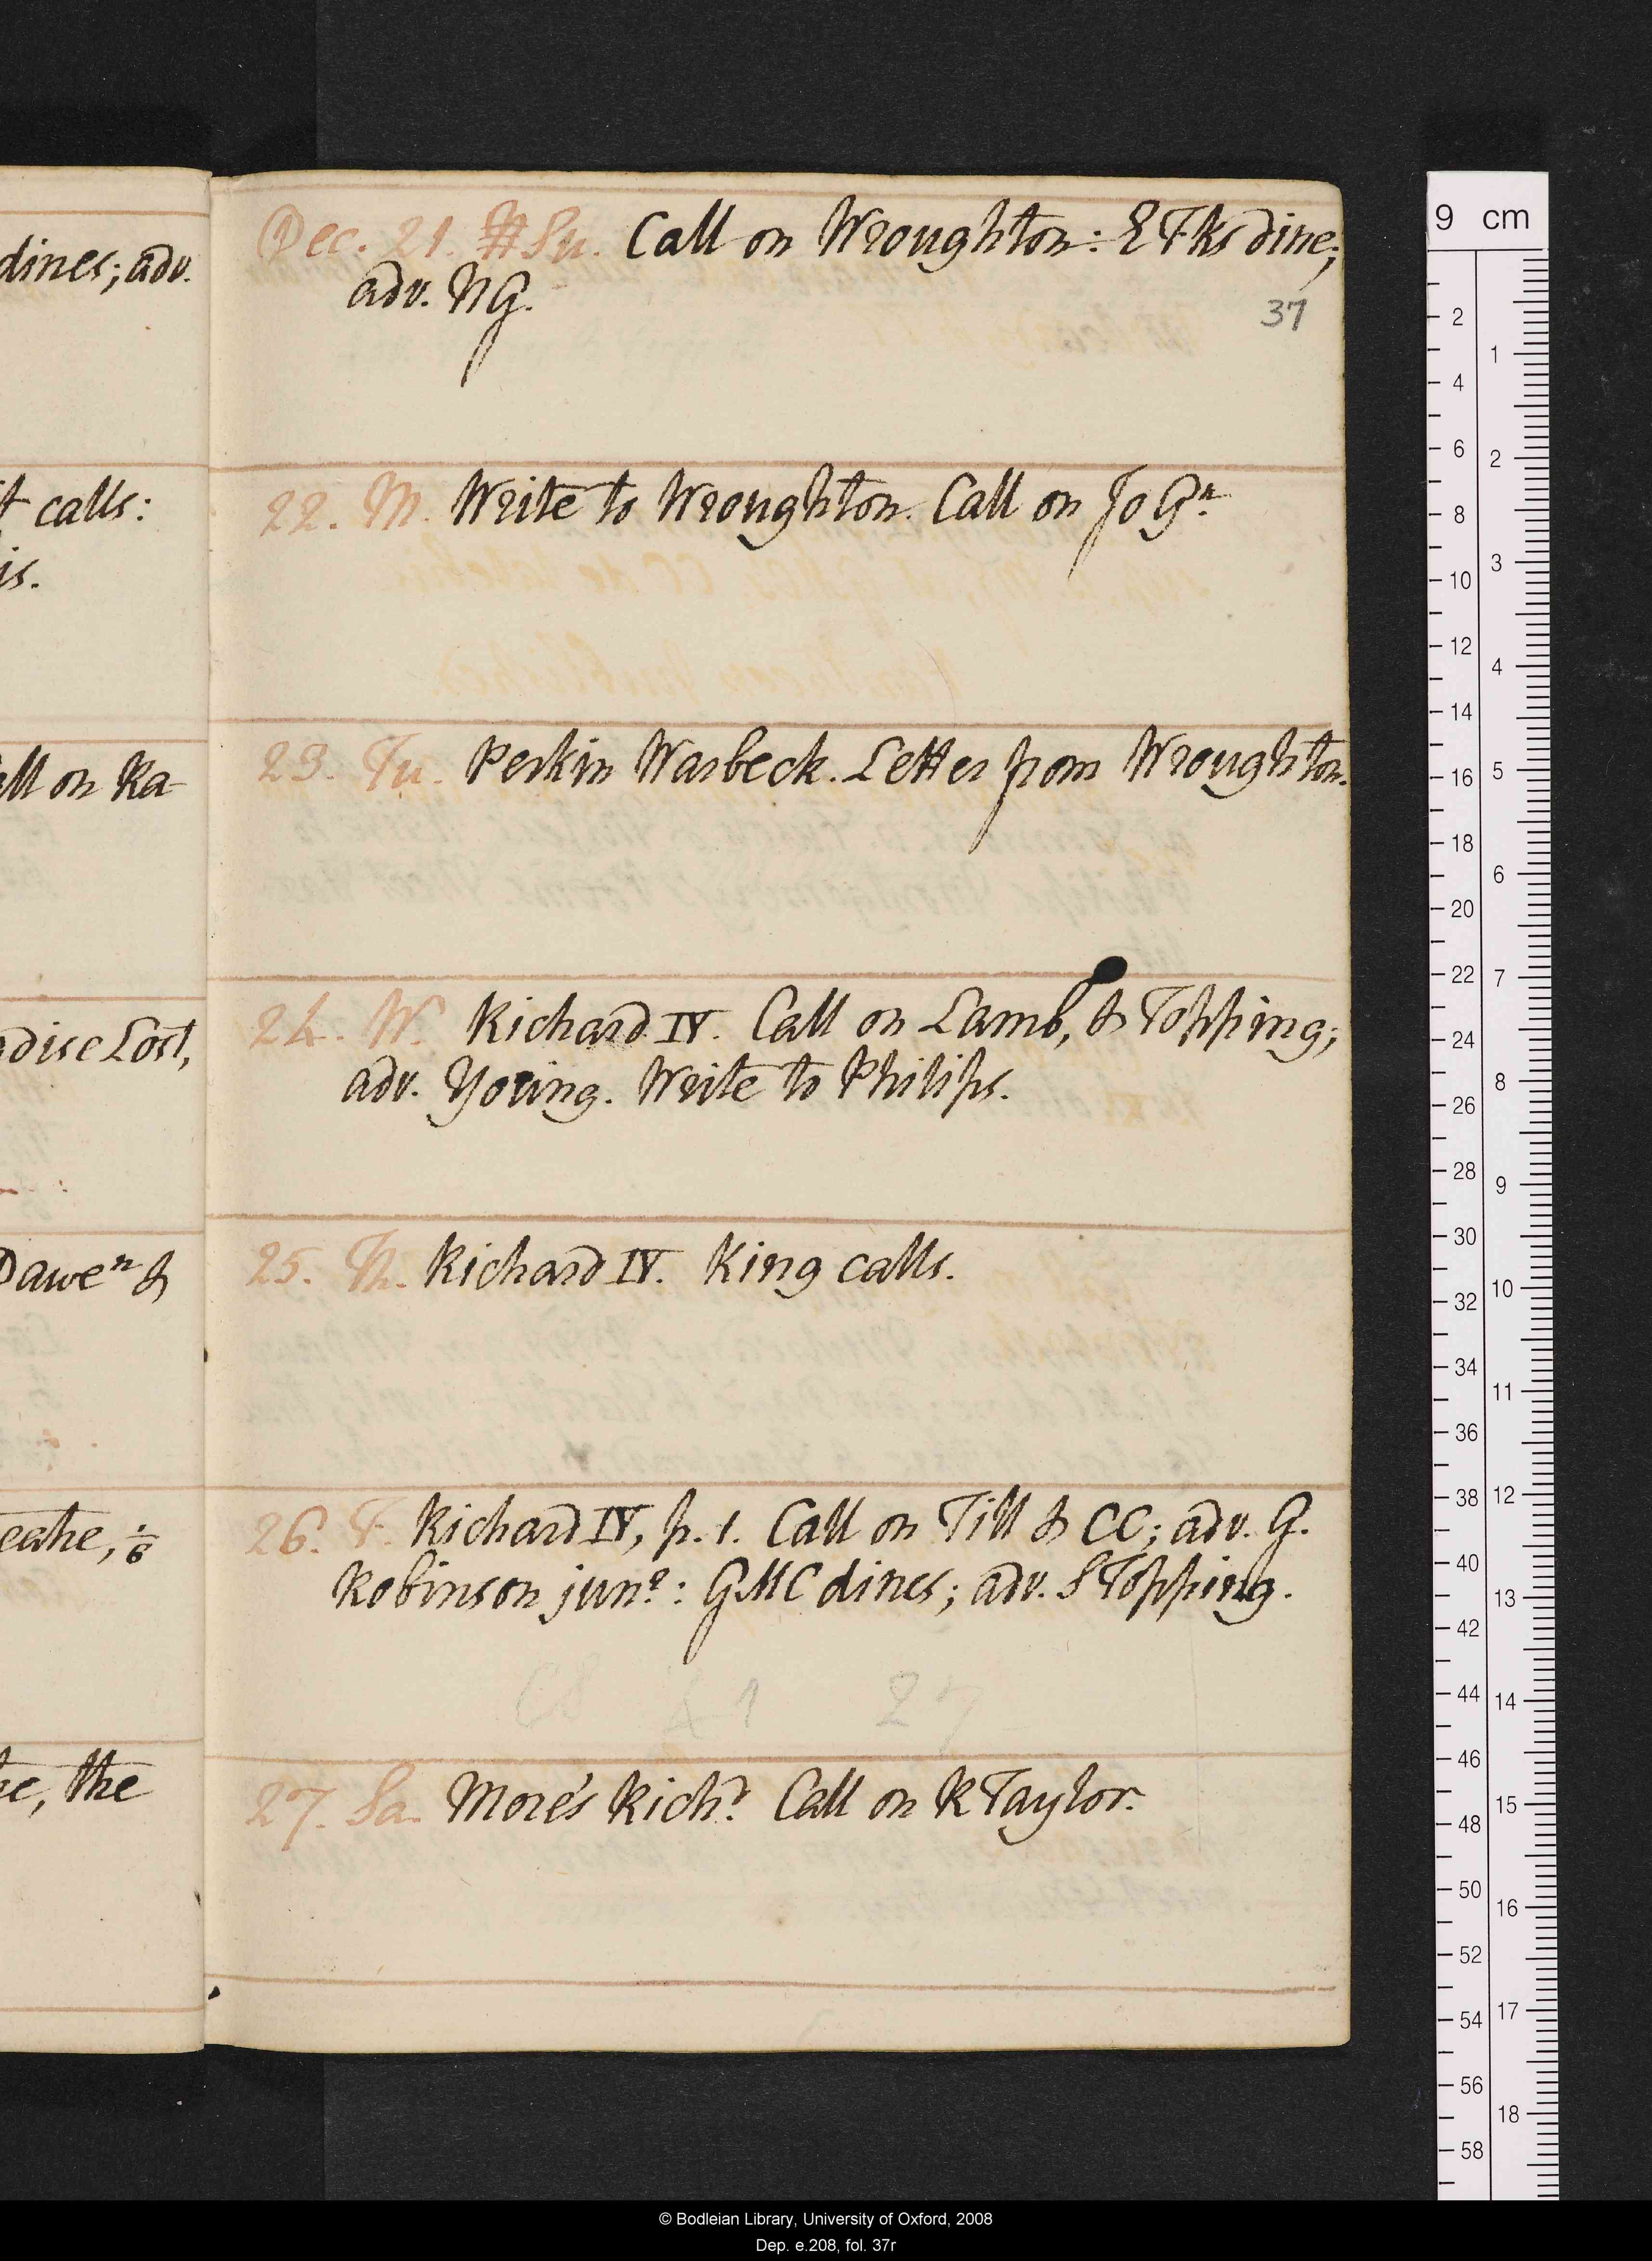 dines; adv.
t calls:
is.
all on Ra-
adise Lost,
Dawe^n &
eathe, ÷6
he, the
Dec. 21. Su. Call on Wroughton: E Fks dine;
adv. NG.
37
22. M. Write to Wroughton. Call on Jo G^n
23. Tu. Perkin Warbeck. Letter from Wroughton.
24. W. Richard IV. Call on Lamb, & Topping;
adv. Young. Write to Philips.
25. Th. Richard IV. King calls.
26. F. Richard IV, p. 1. Call on Till & CC; adv. G.
Robinson jun^r: GMC dines; adv. S Topping.
41 27
27. Sa. More's Rich^d. Call on R Taylor.
9 cm
2
4
6
8
10
12
14
16
18
20
22
24
26
28
30
32
34
36
38
40
42
44
46
48
50
52
54
56
58
1
2
3
4
5
6
7
8
9
10
11
12
13
14
15
16
17
18
© Bodleian Library, University of Oxford, 2008
Dep. e.208, fol. 37r